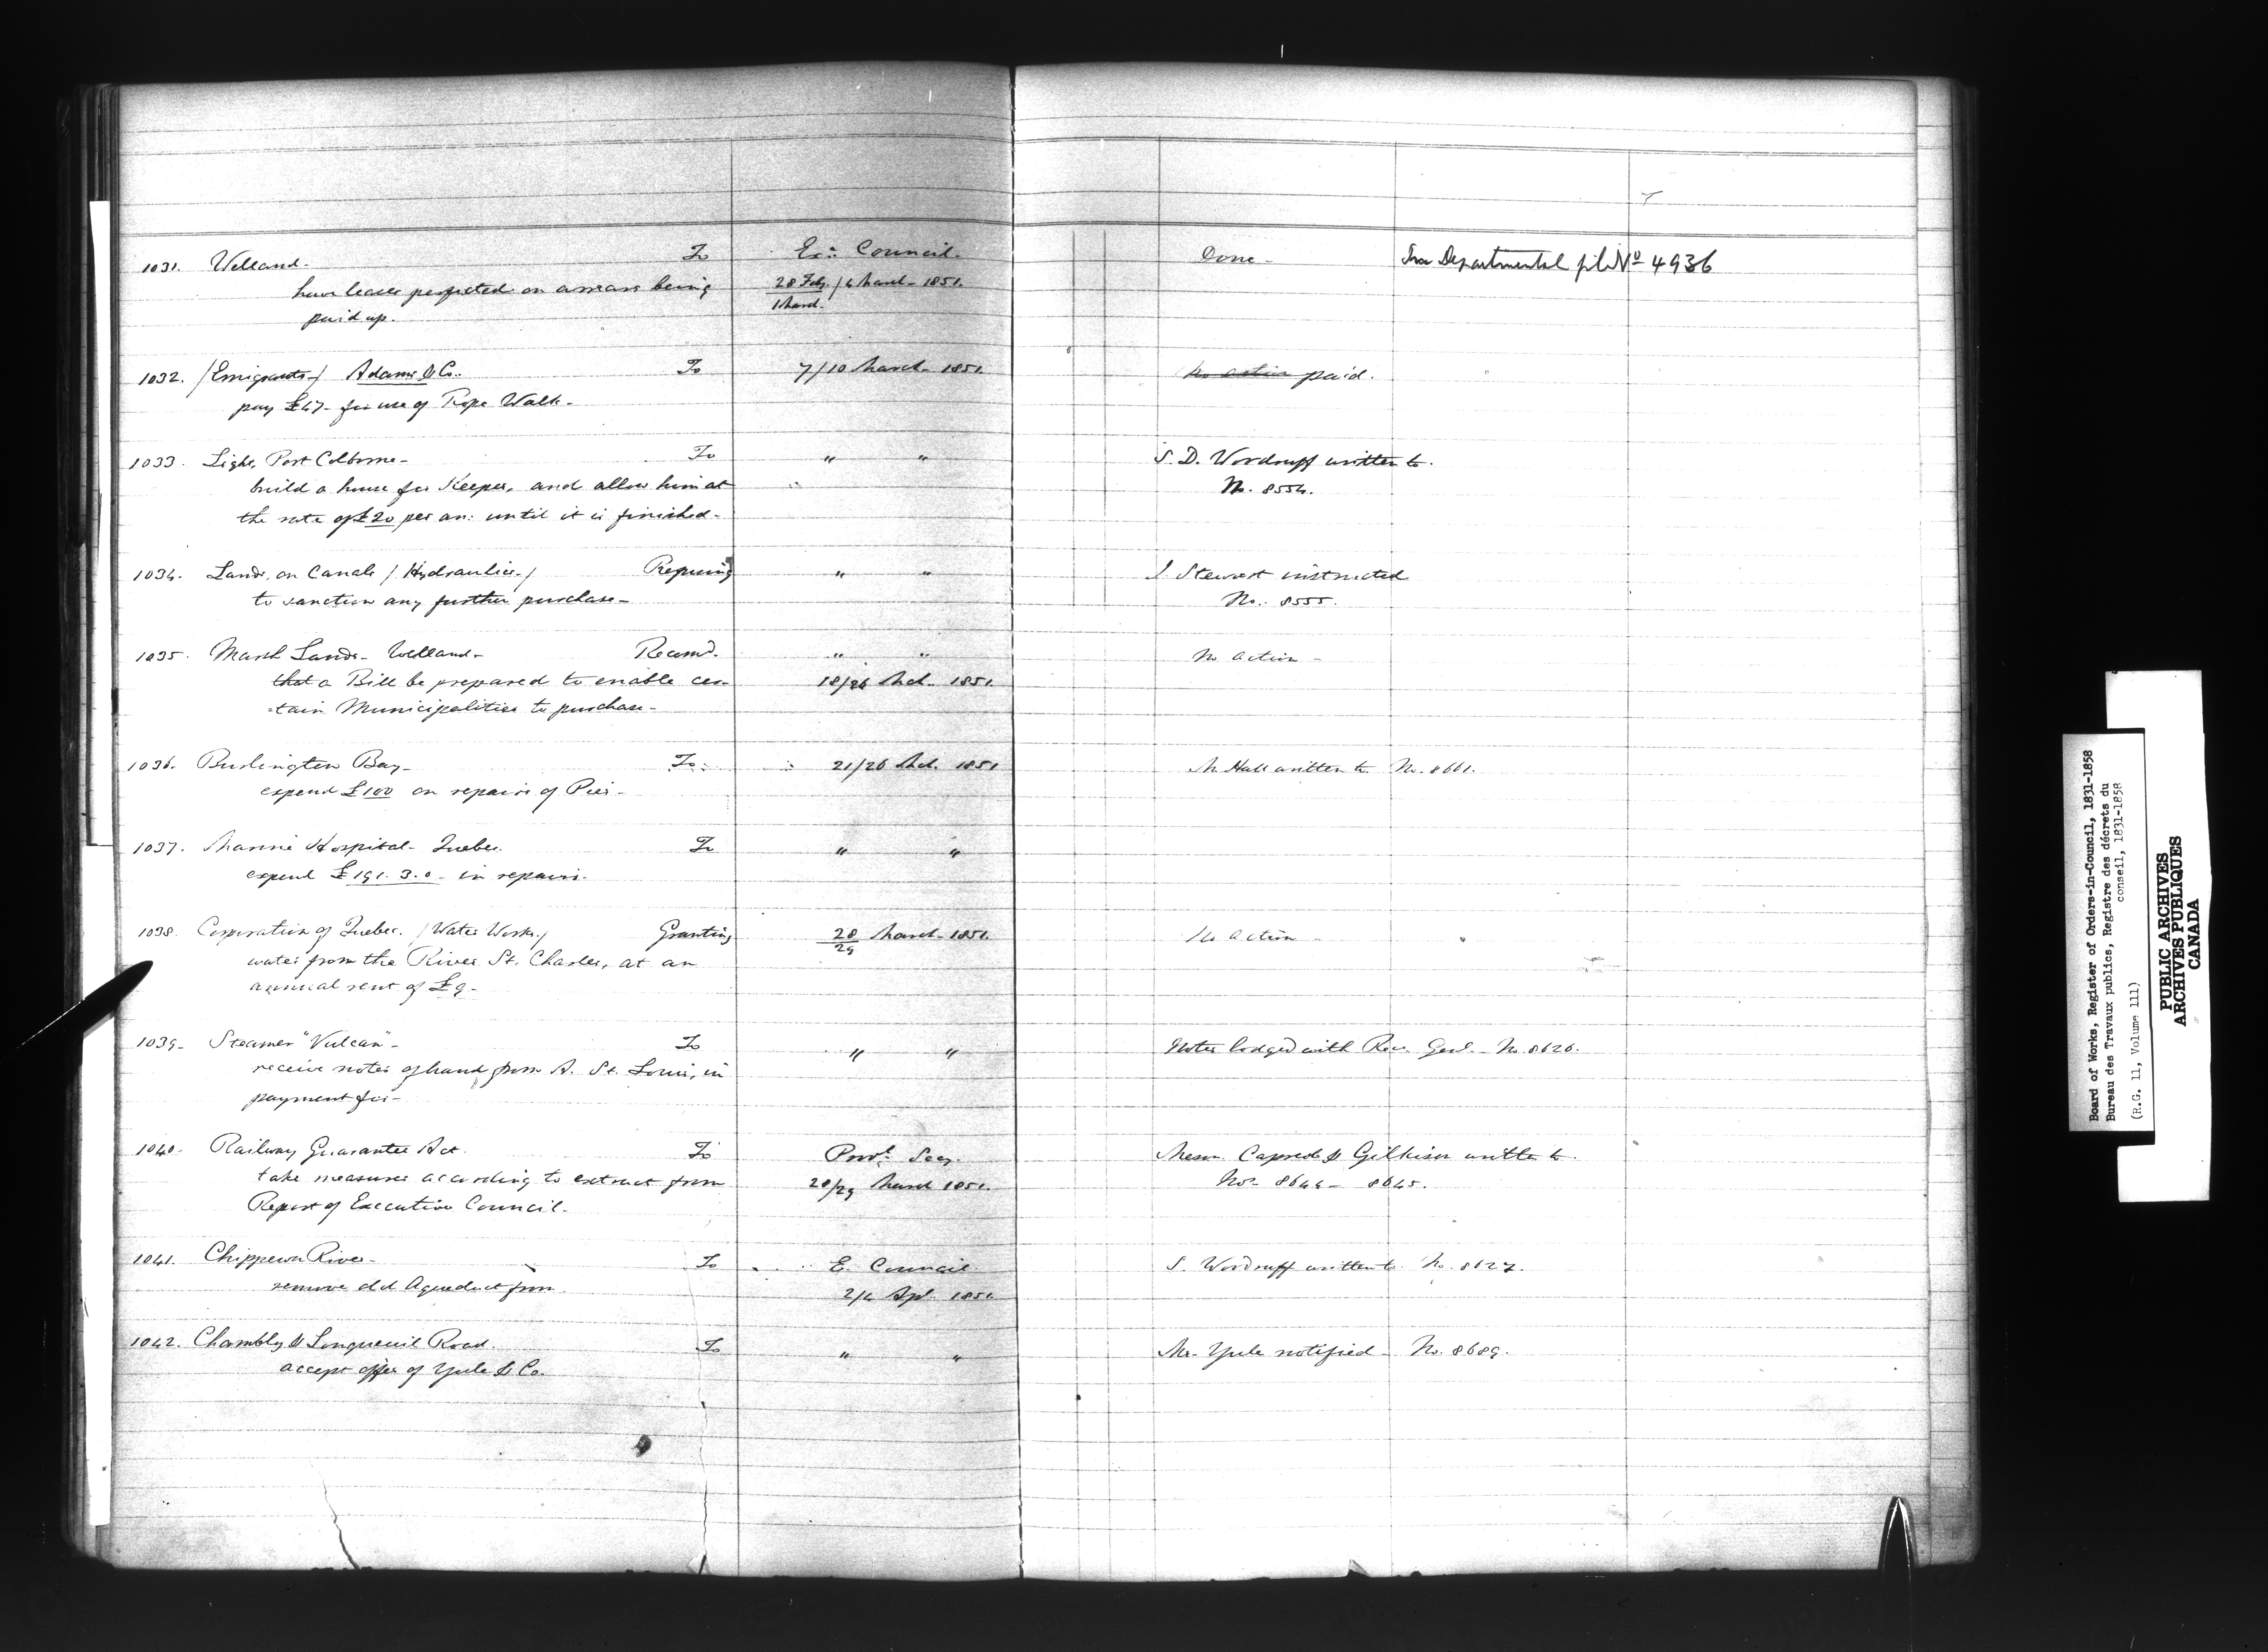 1031. Welland. To Ex: Council. Done - See Departmental file No 4936
have leases perfected on arrears being 28 Feb / 4 March - 1851.
paid up. 1 March.
1032. /Emigrants/ Adams & Co. To 7/10 March - 1851. No action paid.
pay £47 - for use of Rope Walk -
1033. Light, Port Colborne - To " " S. D. Woodruff written to.
build a house for Keeper, and allow him at No. 8554.
the rate of £20 per an: until it is finished -
1034. Lands on Canals / Hydraulics / Refusing " " J. Stewart instructed
to sanction any further purchase - No. 8555.
1035. Marsh Lands - Welland - Recomd. " " No action -
that a Bill be prepared to enable cer- 18/26 Mch. 1851.
-tain Municipalities to purchase -
1036. Burlington Bay - To 21/26 Mch. 1851 Mr Hall written to No. 8661.
expend £100 on repairs of Pier -
1037. Marine Hospital - Quebec. To " "
expend £191. 3. 0 - in repairs.
1038. Corporation of Quebec. / Water Works / Granting 28/29 March - 1851. No action -
water from the River St. Charles, at an
annual rent of £9 -
1039 - Steamer "Vulcan" - To " " Notes lodged with Recr. Genl. - No. 8626.
receive notes of hand from A. St. Louis, in
payment for -
1040. Railway Guarantee Act. To Provl. Secy. Messrs. Capreol & Gilkison written to.
take measures according to extract from 28/29 March 1851. Nos. 8644 - 8645.
Report of Executive Council.
1041. Chippewa River - To E. Council. S. Woodruff written to No. 8627.
remove old Aqueduct from 2/4 Apl. 1851.
1042. Chambly & Longueuil Road. To " " Mr. Yule notified - No. 8689.
accept offer of Yule & Co.
Board of Works, Register of Orders-in-Council, 1831-1858
Bureau des Travaux publics, Registre des décrets du
conseil, 1831-1858
(R.G. 11, Volume 111)
PUBLIC ARCHIVES
ARCHIVES PUBLIQUES
CANADA